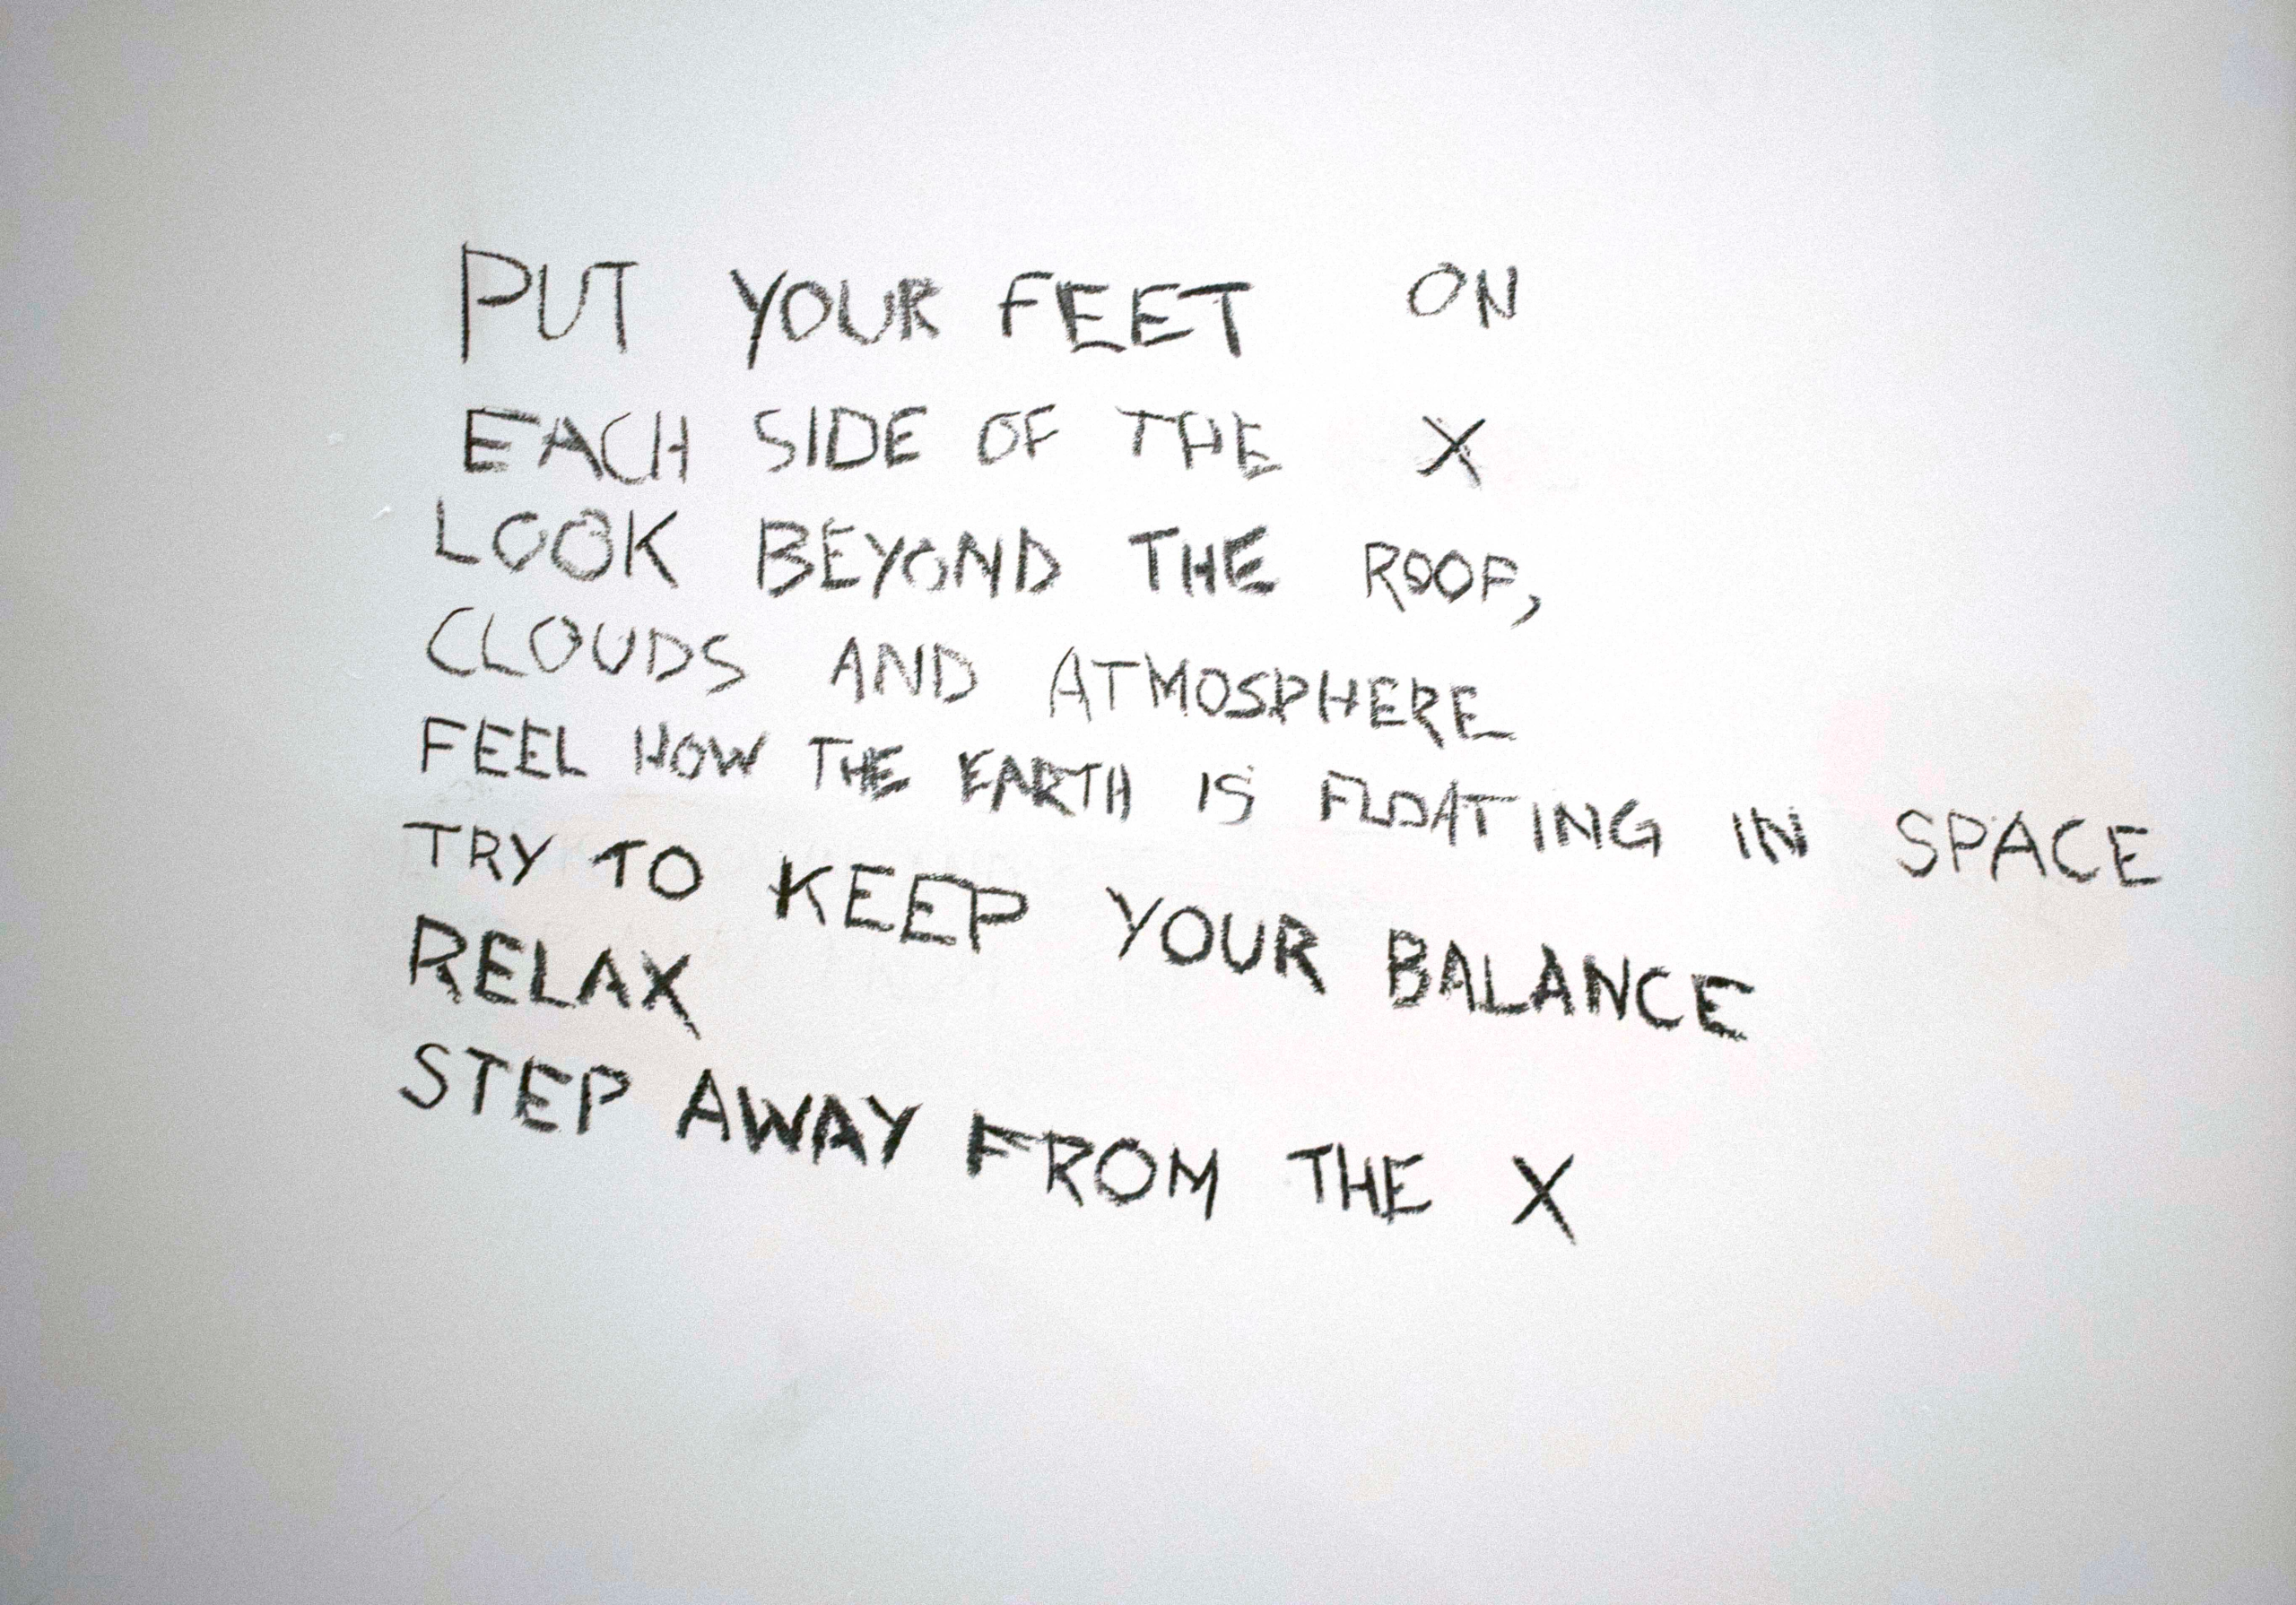 PUT YOUR FEET ON
EACH SIDE OF THE X
LOOK BEYOND THE ROOF,
CLOUDS AND ATMOSPHERE
FEEL HOW THE EARTH IS FLOATING IN SPACE
TRY TO KEEP YOUR BALANCE
RELAX
STEP AWAY FROM THE X